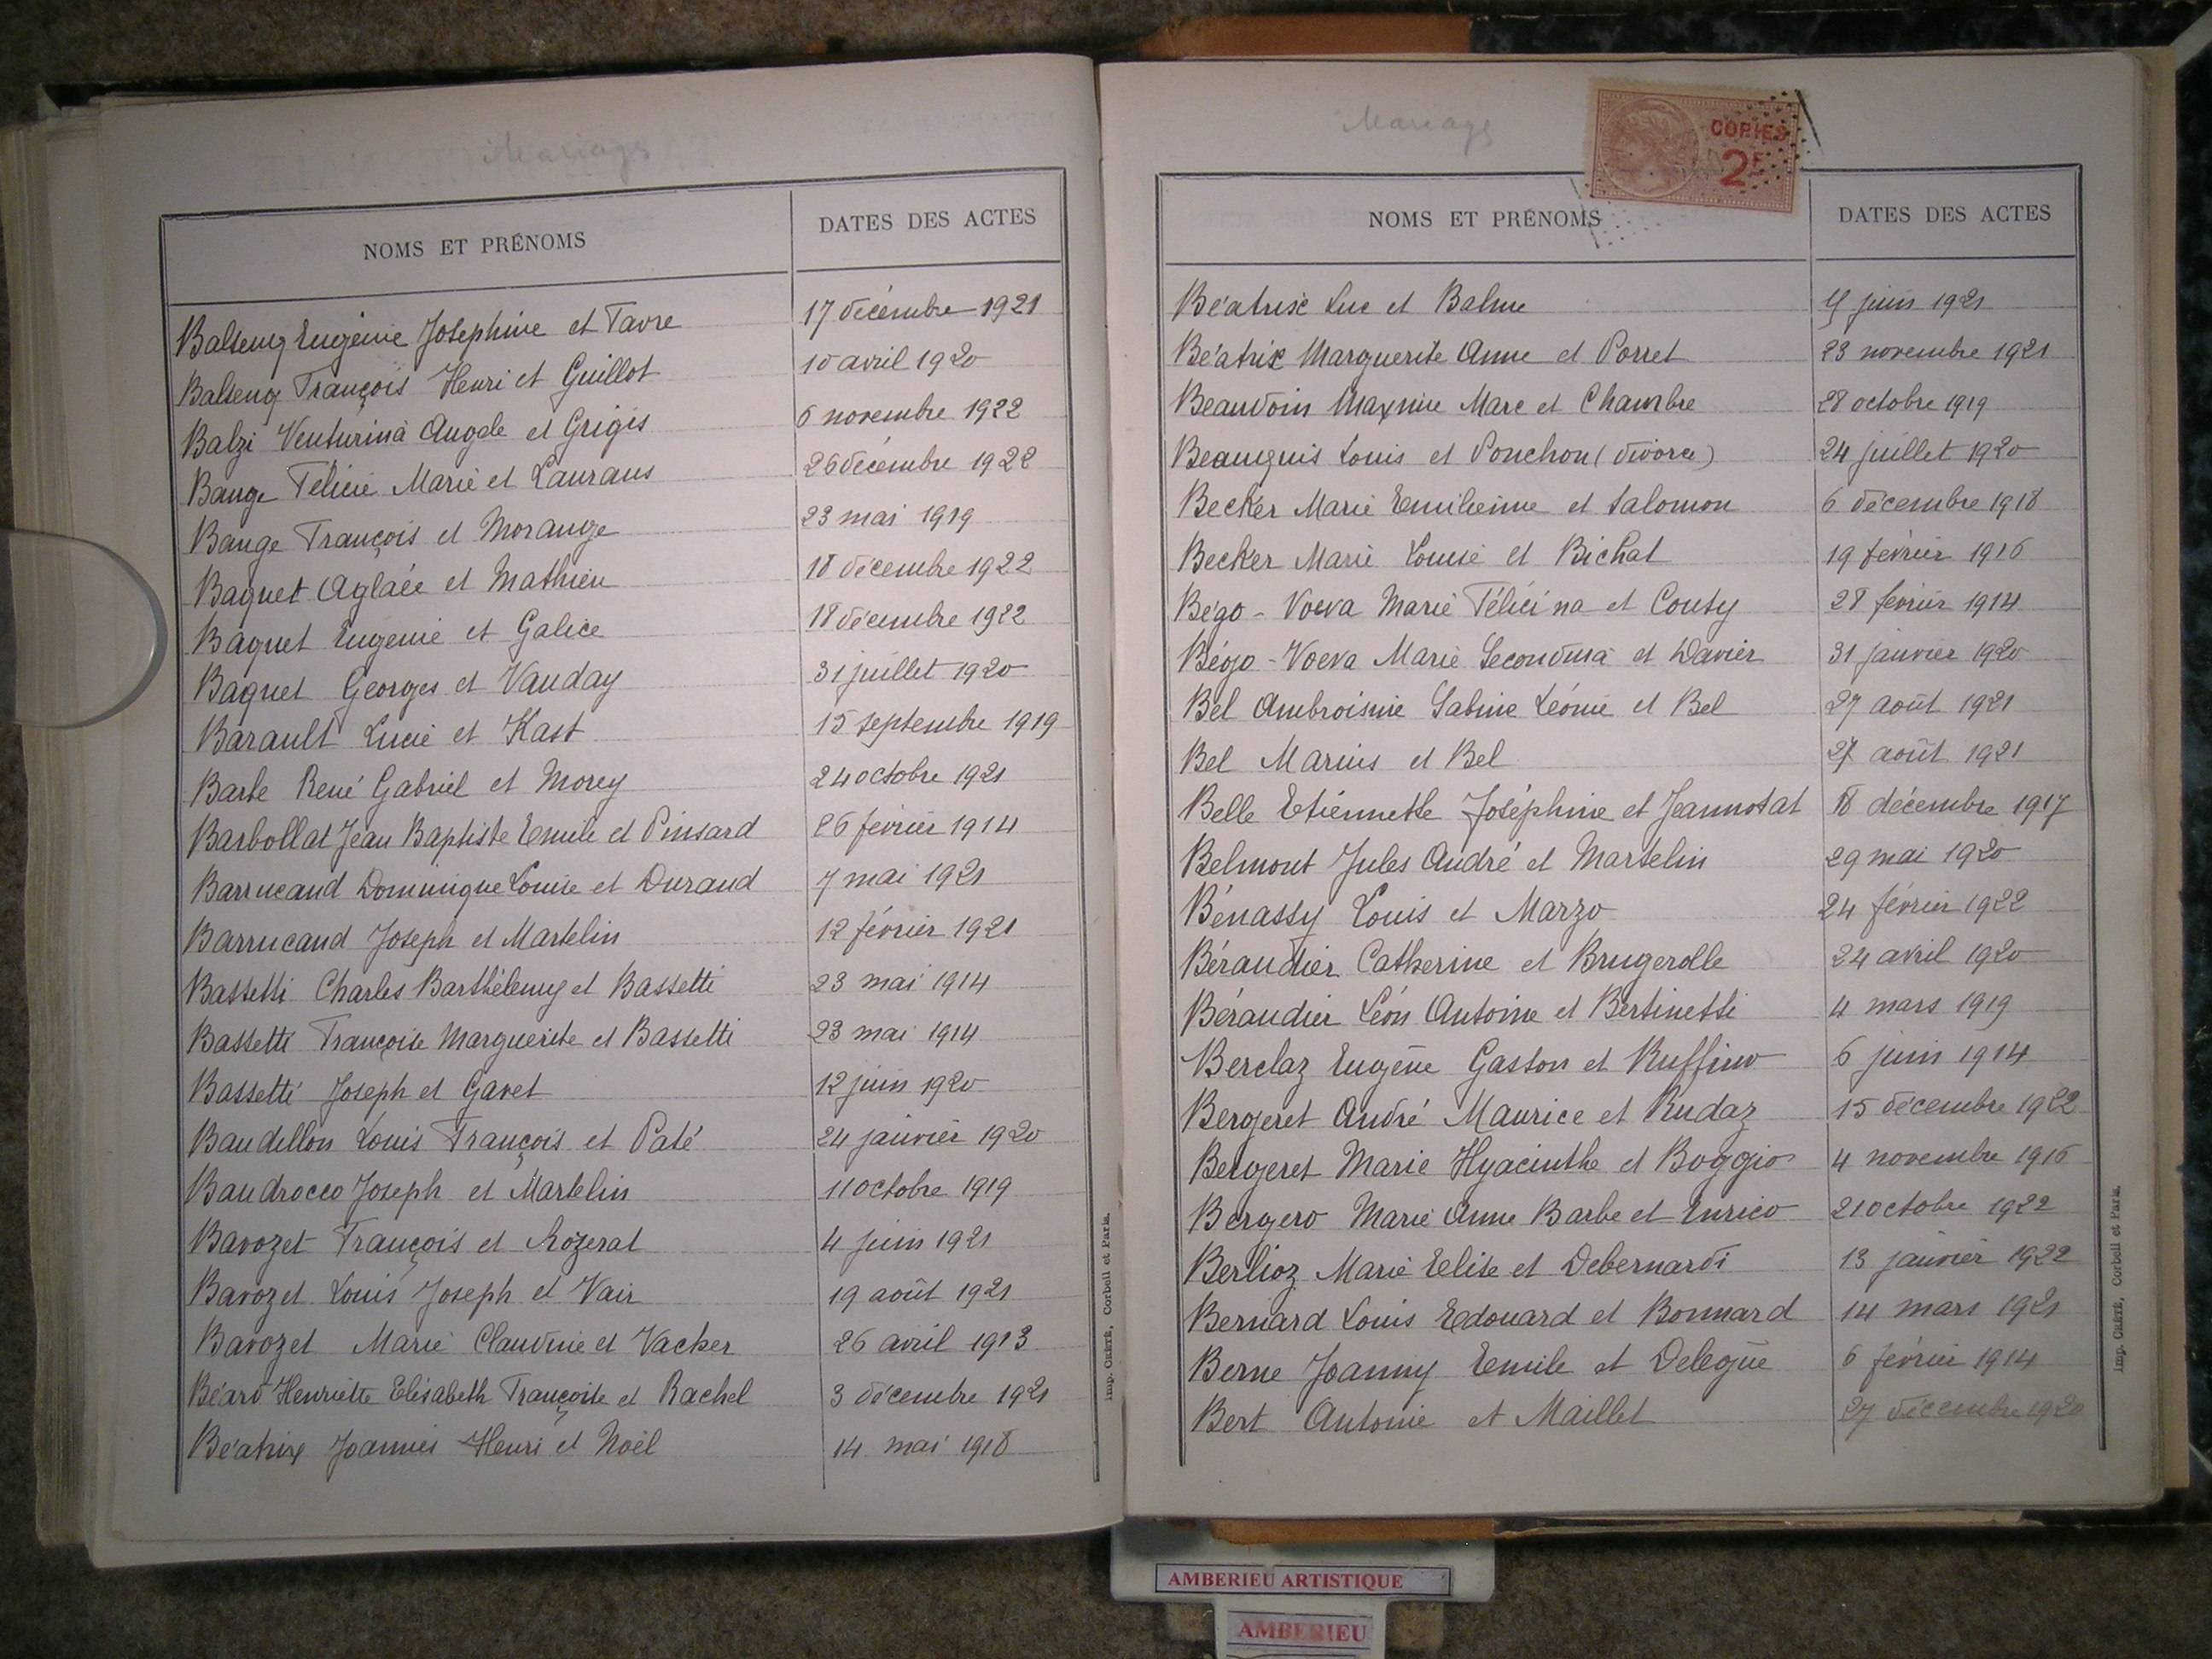 Mariages
NOMS ET PRÉNOMS
DATES DES ACTES
Balseng Eugénie Joséphine et Favre 17 décembre 1921
Balseng François Henri et Guillot 10 avril 1920
Balzi Venturina Angèle et Grigis 6 novembre 1922
Bange Félicie Marie et Laurans 26 décembre 1922
Bange François et Morange 23 mai 1919
Baquet Aglaée et Mathieu 18 décembre 1922
Baquet Eugénie et Galice 18 décembre 1922
Baquet Georges et Vauday 31 juillet 1920
Barault Lucie et Kast 15 septembre 1919
Barbe René Gabriel et Morey 24 octobre 1921
Barbollat Jean Baptiste Emile et Pinsard 26 février 1914
Barrucand Dominique Louise et Durand 7 mai 1921
Barrucand Joseph et Martelin 12 février 1921
Bassetti Charles Barthélemy et Bassetti 23 mai 1914
Bassetti Françoise Marguerite et Bassetti 23 mai 1914
Bassetti Joseph et Gavet 12 juin 1920
Baudillon Louis François et Paté 24 janvier 1920
Baudrocco Joseph et Martelin 11 octobre 1919
Bavozet François et Rozerat 4 juin 1921
Bavozet Louis Joseph et Vair 19 août 1921
Bavozet Marie Claudine et Vacker 26 avril 1913
Béard Henriette Elisabeth Françoise et Rachel 3 décembre 1921
Béatrix Joannès Henri et Noël 14 mai 1918
Imp. Crété, Corbeil et Paris.
Mariages
COPIES
2F
NOMS ET PRÉNOMS
DATES DES ACTES
Béatrix Luc et Balme 4 juin 1921
Béatrix Marguerite Anne et Porret 23 novembre 1921
Beaudoin Maxime Marc et Chambre 28 octobre 1919
Beauquis Louis et Ponchon (divorce) 24 juillet 1920
Becker Marie Emilienne et Salomon 6 décembre 1918
Becker Marie Louise et Bichat 19 février 1916
Bégo-Voeva Marie Félicina et Couty 28 février 1914
Bégo-Voeva Marie Secondina et Davier 31 janvier 1920
Bel Ambroisine Sabine Léonie et Bel 27 août 1921
Bel Marius et Bel 27 août 1921
Belle Etiennette Joséphine et Jeannotat 18 décembre 1917
Belmont Jules André et Martelin 29 mai 1920
Bénassy Louis et Marzo 24 février 1922
Béraudier Catherine et Brugerolle 24 avril 1920
Béraudier Léon Antoine et Bertinetti 4 mars 1919
Berclaz Eugène Gaston et Ruffino 6 juin 1914
Bergeret André Maurice et Rudaz 15 décembre 1922
Bergeret Marie Hyacinthe et Boggio 4 novembre 1916
Bergero Marie Anne Barbe et Enrico 21 octobre 1922
Berlioz Marie Elise et Debernardi 13 janvier 1922
Bernard Louis Edouard et Bonnard 14 mars 1921
Berne Joanny Emile et Delegue 6 février 1914
Bert Antonie et Maillet 27 décembre 1920
Imp. Crété, Corbeil et Paris.
AMBERIEU ARTISTIQUE
AMBERIEU